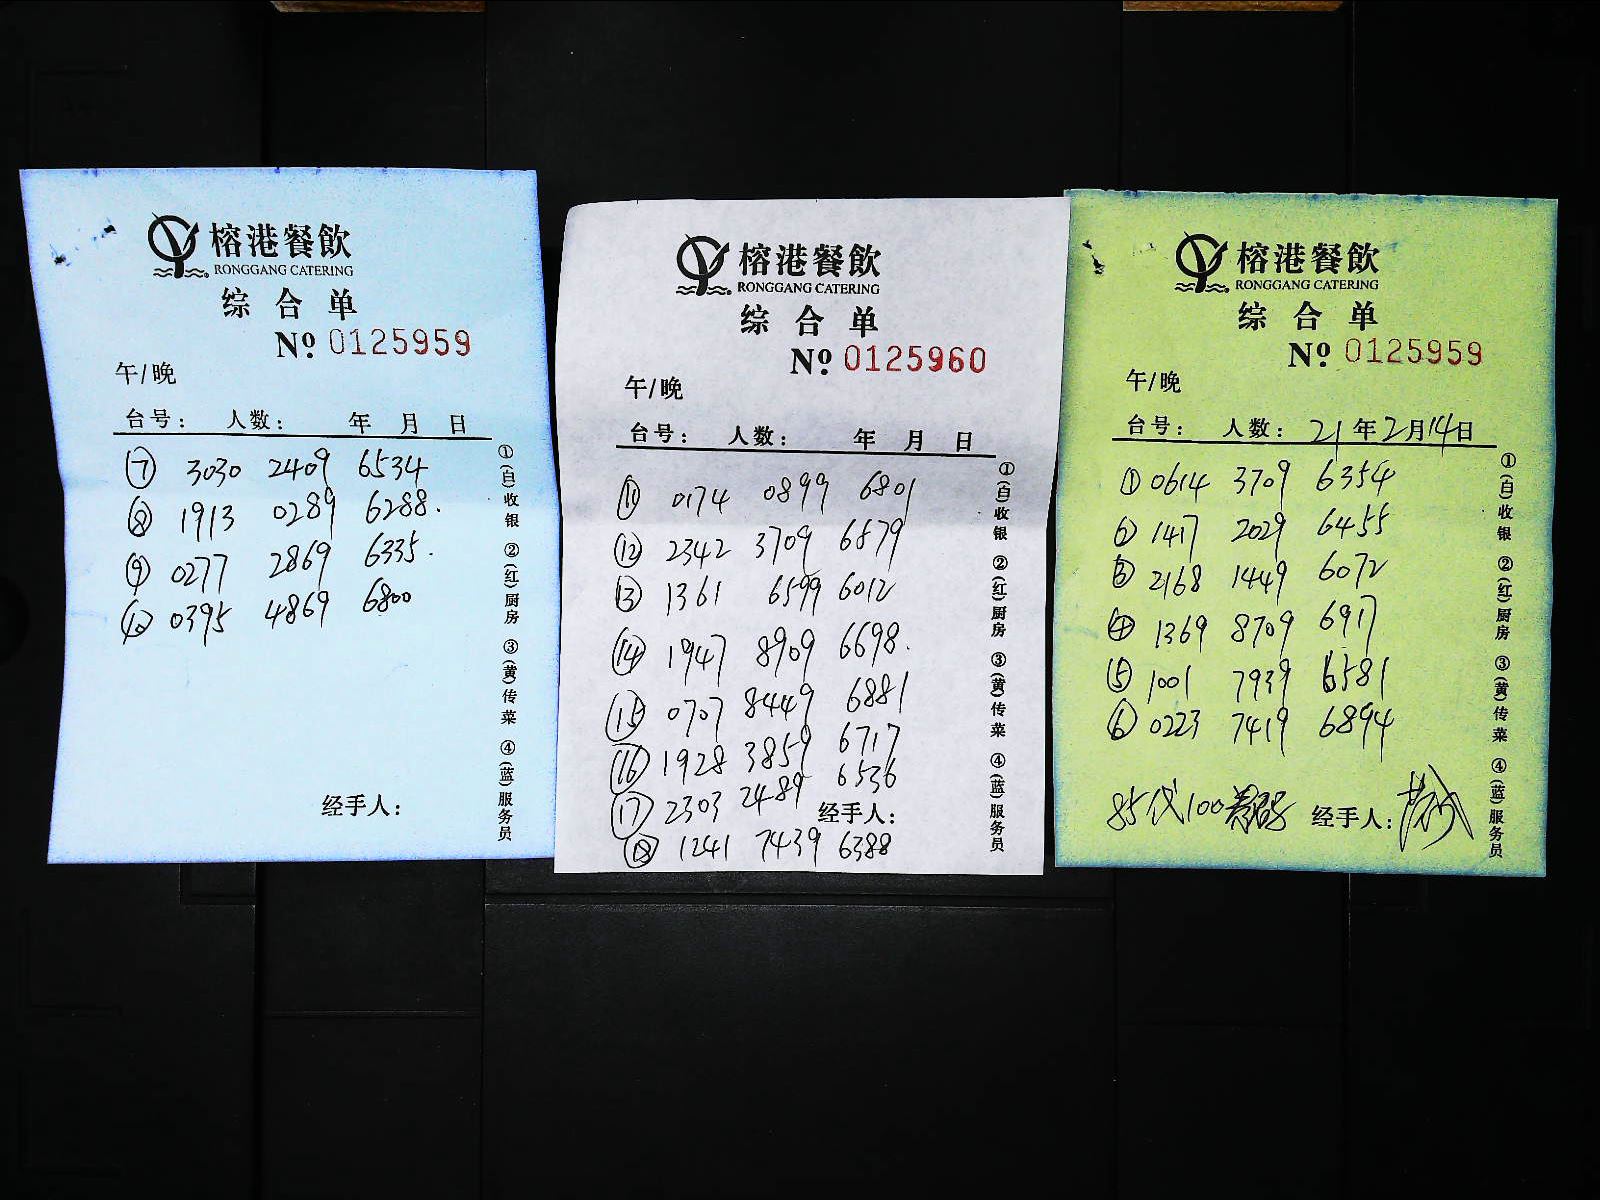 榕港餐飲
RONGGANG CATERING
综合单
Nº 0125959
午/晚
台号： 人数： 年 月 日
⑦ 3030 2409 6534
⑧ 1913 0289 6288.
⑨ 0277 2869 6335.
⑩ 0395 4869 6800
经手人：
①(白)收银 ②(红)厨房 ③(黄)传菜 ④(蓝)服务员
榕港餐飲
RONGGANG CATERING
综合单
Nº 0125960
午/晚
台号： 人数： 年 月 日
⑪ 0174 0899 6801
⑫ 2342 3709 6879
⑬ 1361 6599 6012
⑭ 1947 8909 6698.
⑮ 0707 8449 6881
⑯ 1928 3859 6717
⑰ 2303 2489 6536
经手人：
⑱ 1241 7439 6388
①(白)收银 ②(红)厨房 ③(黄)传菜 ④(蓝)服务员
榕港餐飲
RONGGANG CATERING
综合单
Nº 0125959
午/晚
台号： 人数： 21年2月14日
① 0614 3709 6354
② 1417 2029 6455
③ 2168 1449 6072
④ 1369 8709 6917
⑤ 1001 7939 6581
⑥ 0223 7419 6894
85代100 经手人：
①(白)收银 ②(红)厨房 ③(黄)传菜 ④(蓝)服务员